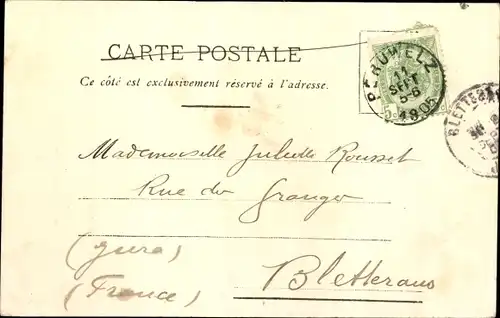 CARTE POSTALE
Ce côté est exclusivement réservé à l'adresse.
PERUWELZ
11
SEPT
5-6
1905
BLETTERA
Mademoiselle Juliette Rousset
Rue du Granger
Bletterans
(Jura)
(France)